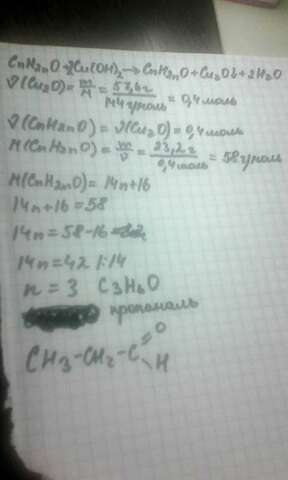 CnH2nO+2Cu(OH)2→CnH2nO+Cu2O↓+2H2O
ν(Cu2O)=m/M=57,6г/144г/моль=0,4моль
ν(CnH2nO)=ν(Cu2O)=0,4моль
M(CnH2nO)=m/ν=23,2г/0,4моль=58г/моль
M(CnH2nO)=14n+16
14n+16=58
14n=58-16
14n=42 |:14
n=3 C3H6O
пропаналь
CH3-CH2-C=O
-H